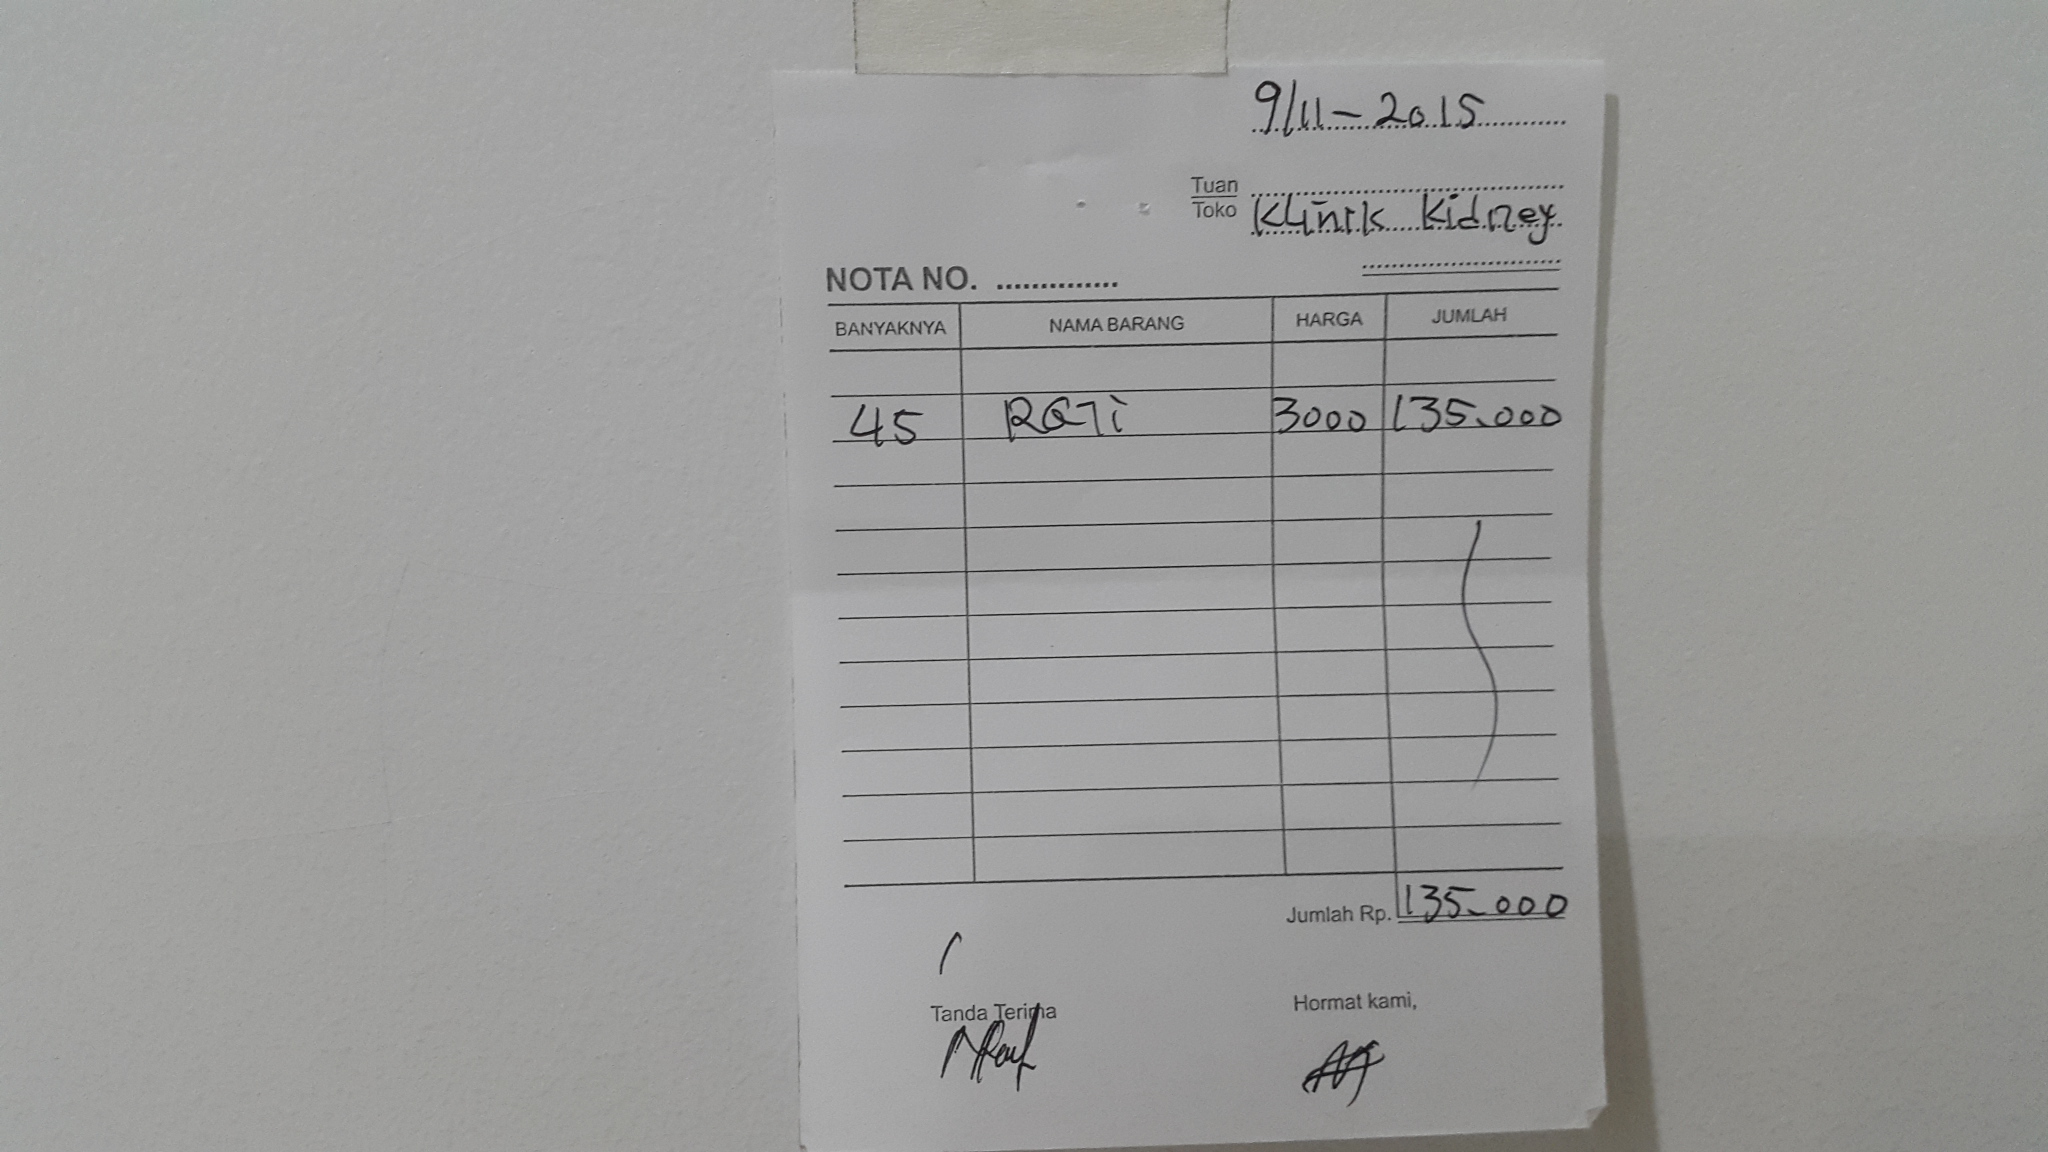 9/11-2015
Tuan
Toko Klinik Kidney
NOTA NO. ...............
BANYAKNYA NAMA BARANG HARGA JUMLAH
45 ROTi 3000 135.000
Jumlah Rp. 135.000
Tanda Terima Hormat kami,